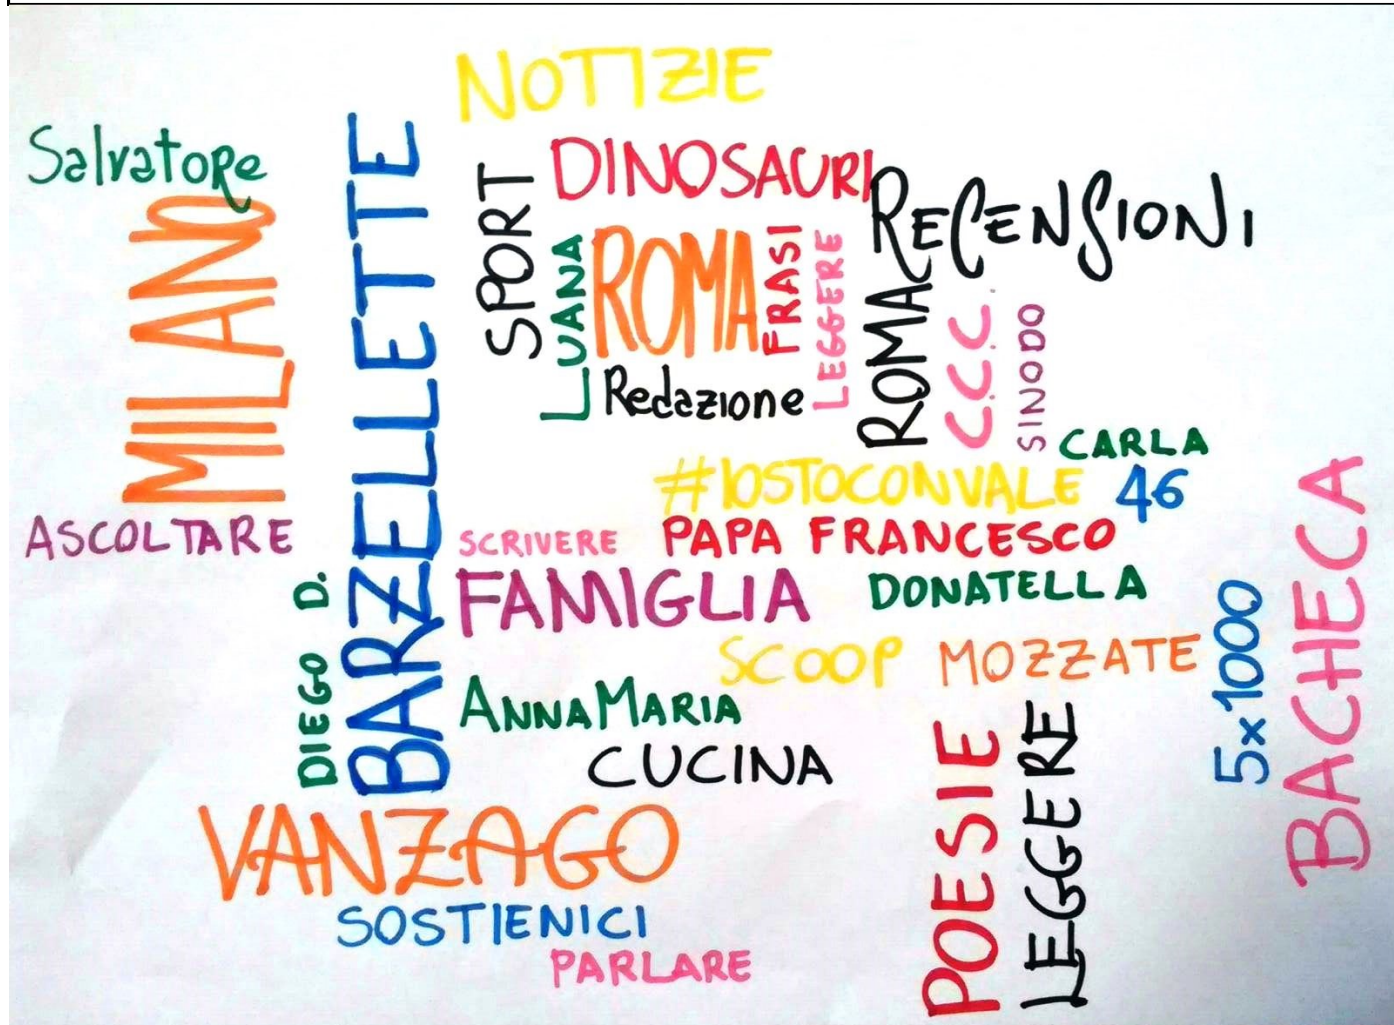 NOTIZIE
Salvatore
MILANO
BARZELLETTE
SPORT
DINOSAURI
RECENSIONI
LUANA
ROMA
FRASI
LEGGERE
ROMA
C.C.C.
SINODO
Redazione
CARLA
#IOSTOCONVALE
46
ASCOLTARE
SCRIVERE
PAPA FRANCESCO
FAMIGLIA
DONATELLA
DIEGO D.
SCOOP
MOZZATE
5x1000
BACHECA
ANNAMARIA
CUCINA
POESIE
LEGGERE
VANZAGO
SOSTIENICI
PARLARE